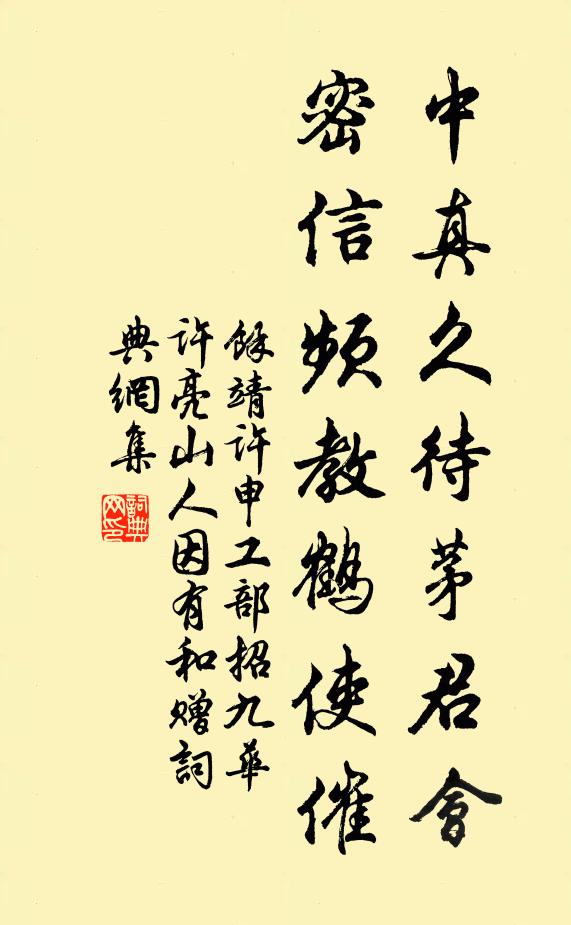 中真久待茅君會
密信頻教鶴使催
餘靖許申工部招九華
許亮山人因有和贈詞
典網集
詞典
网印